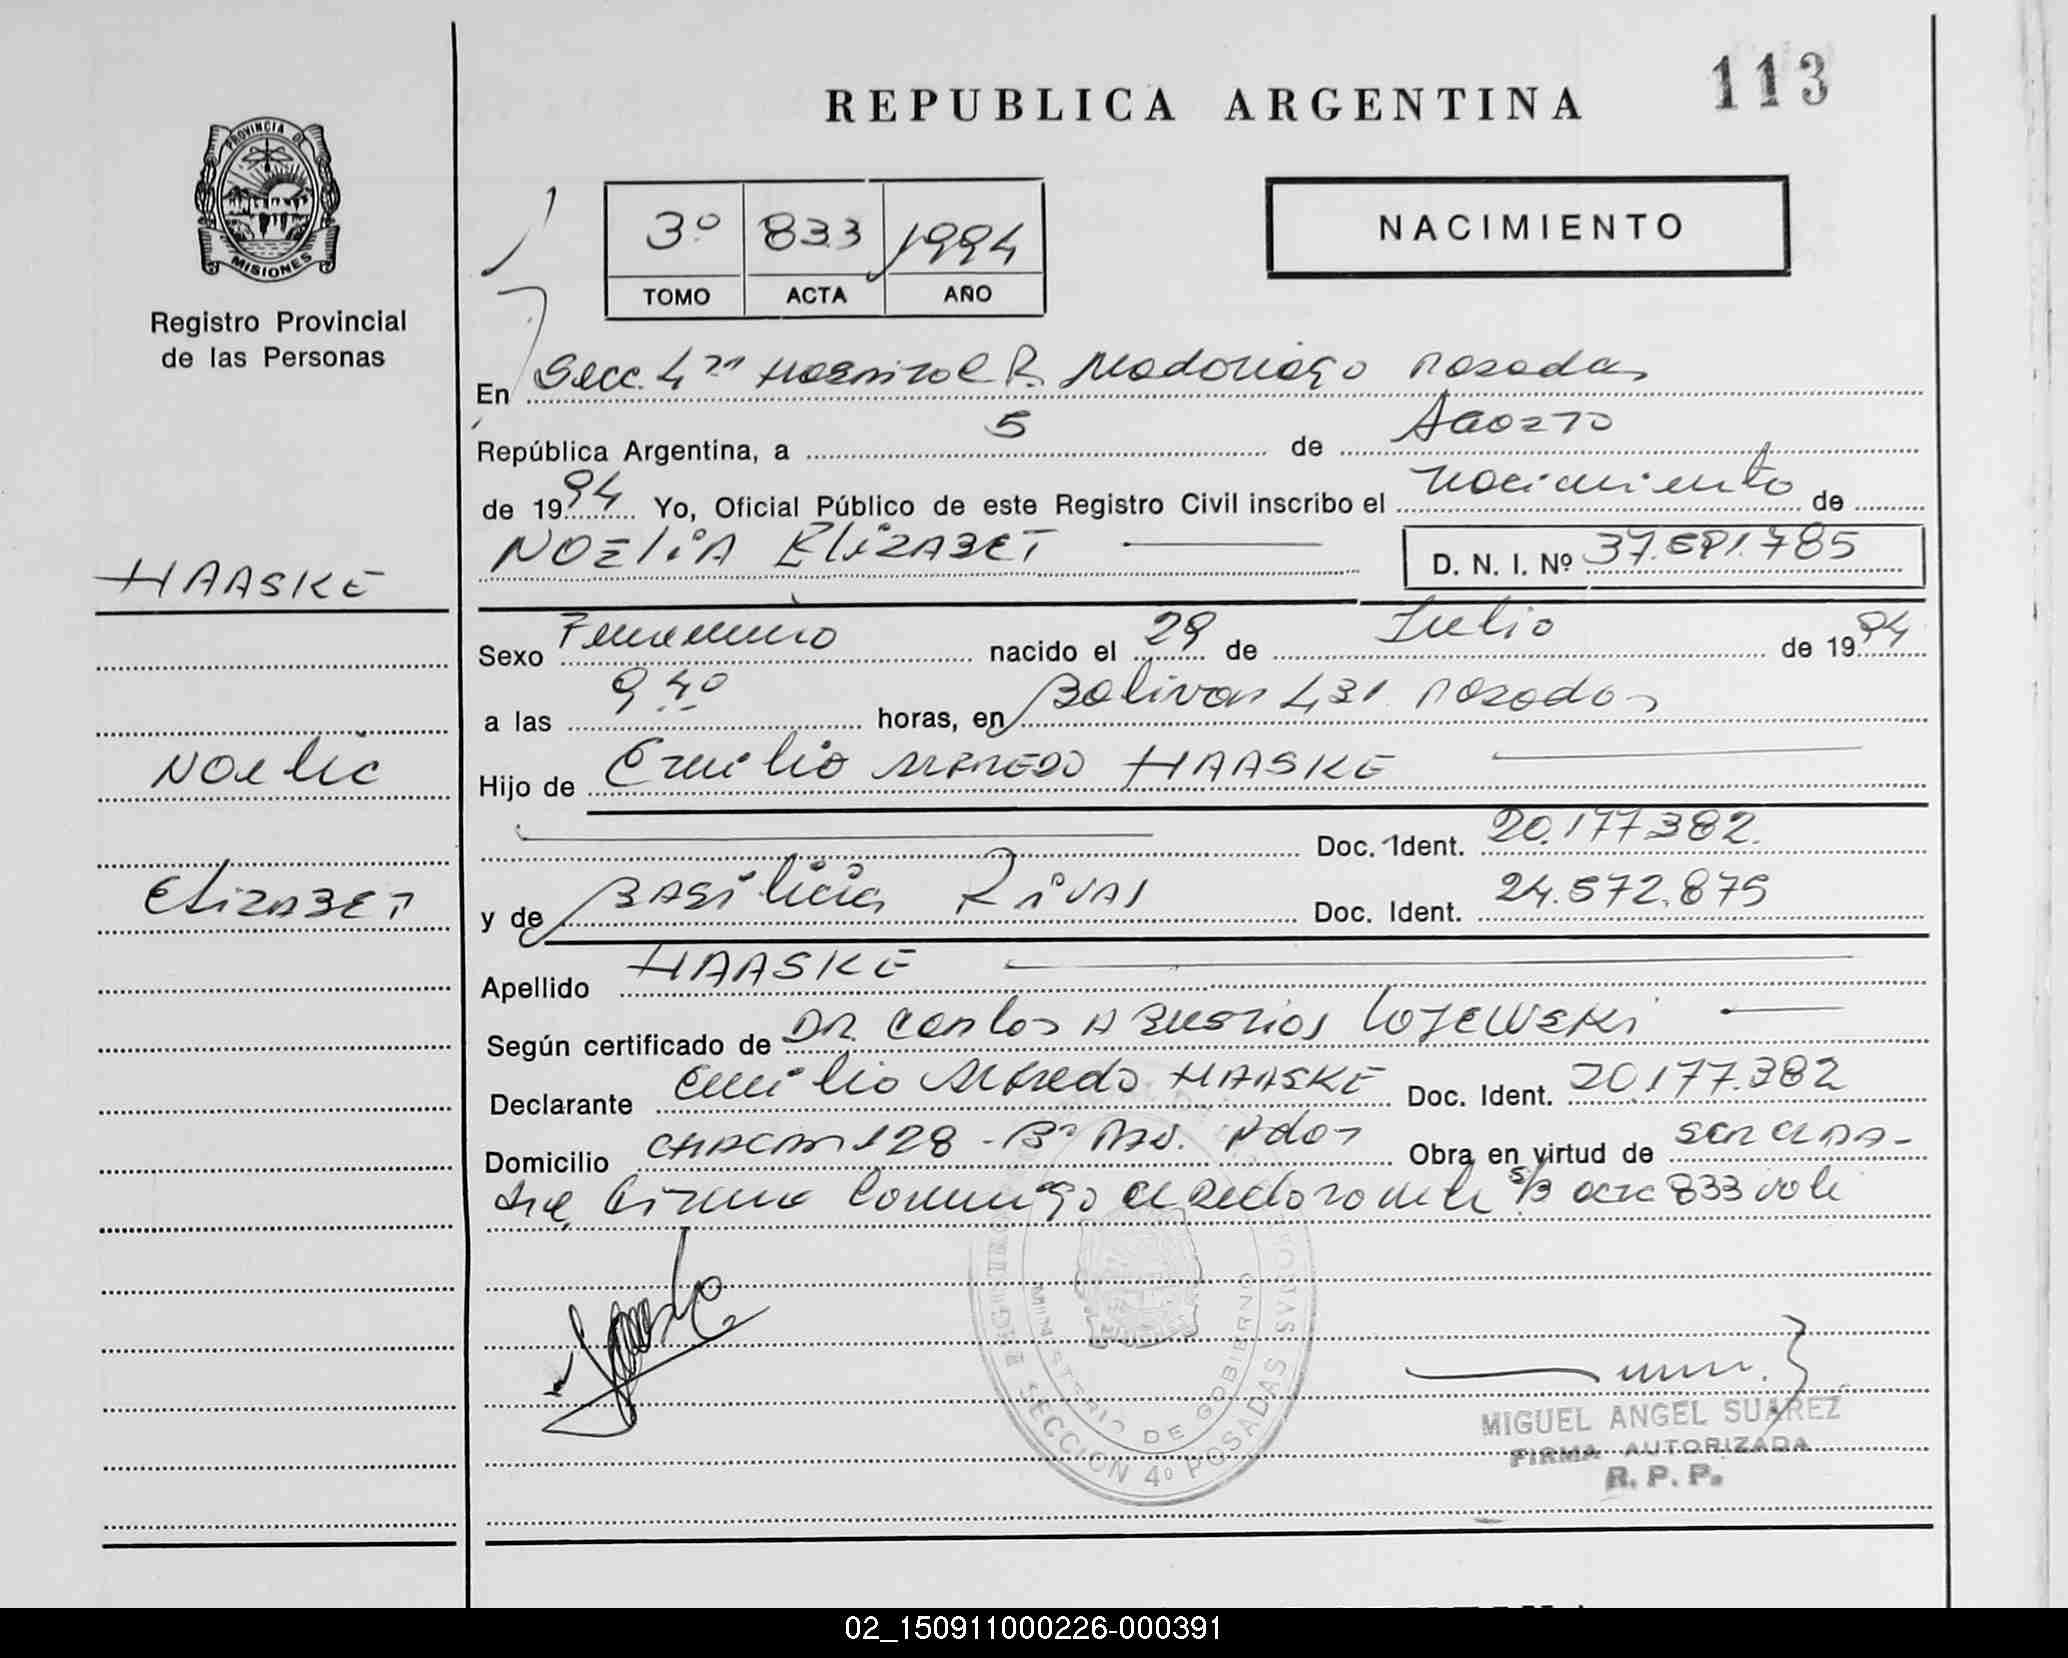 113
REPUBLICA ARGENTINA
PROVINCIA DE
MISIONES
Registro Provincial
de las Personas
3º 833 1994
TOMO ACTA AÑO
NACIMIENTO
En Secc. 4ta Hospital R. Madariaga Posadas
República Argentina, a 5 de Agosto
de 1994 Yo, Oficial Público de este Registro Civil inscribo el nacimiento de
NOELIA ELIZABET D. N. I. Nº 37.591.785
HAASKE
Sexo Femenino nacido el 29 de Julio de 1994
a las 9,40 horas, en Bolivar 431 Posadas
Noelia
Hijo de Emilio ALFREDO HAASKE
Doc. Ident. 20.177.382.
ELIZABET
y de BASILICIA RIVAS Doc. Ident. 24.572.875
Apellido HAASKE
Según certificado de DR. Carlos LOJEWSKI
Declarante Emilio Alfredo HAASKE Doc. Ident. 20.177.382
Domicilio CHACRA 128 - Bº Pdas Obra en virtud de
firma conmigo el declarante S/B 833 vale
REGISTRO PROVINCIAL DE LAS PERSONAS
MINISTERIO DE GOBIERNO
SECCION 4º POSADAS
MIGUEL ANGEL SUAREZ
FIRMA AUTORIZADA
R. P. P.
02_150911000226-000391